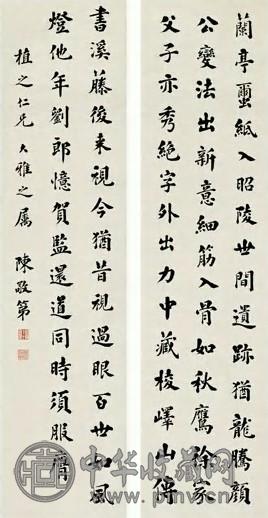 蘭亭蠒紙入昭陵世間遺跡猶龍騰顏
公變法出新意細筋入骨如秋鷹徐家
父子亦秀絕字外出力中藏棱嶧山傳
書溪藤後來視今猶昔視過眼百世如風
燈他年劉郎憶賀監還道同時須服膺
植之仁兄大雅之屬 陳敬第
中华收藏网